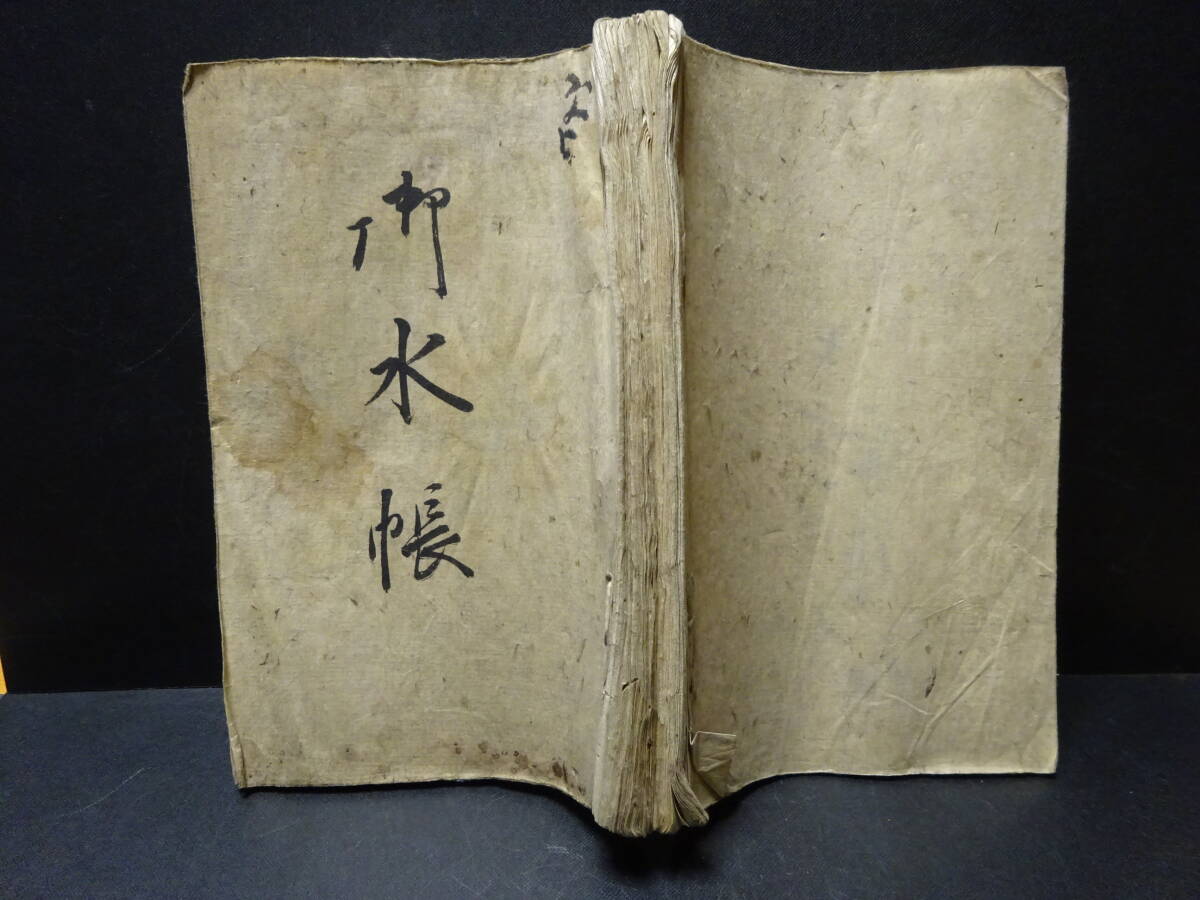 御水帳